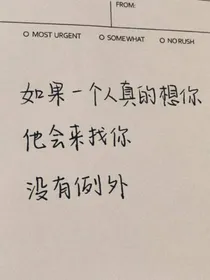 FROM:
MOST URGENT SOMEWHAT NO RUSH
如果一个人真的想你
他会来找你
没有例外